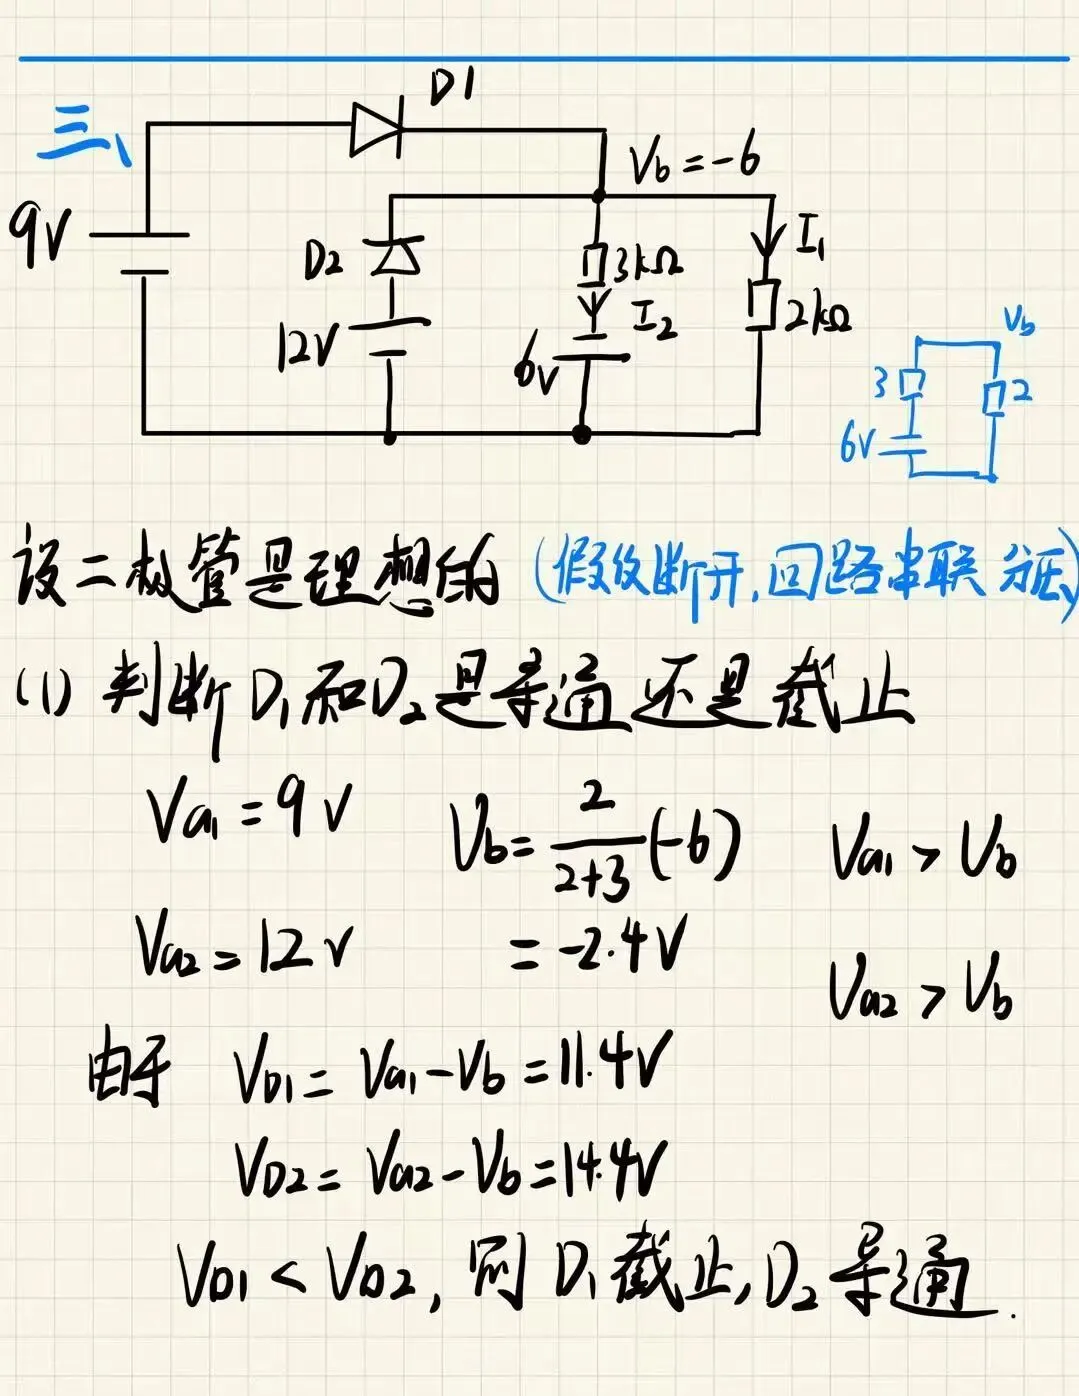 三、
D1
Vb=-6
9V
D2
3kΩ
I1
12V
I2
2kΩ
6V
Vb
3
2
6V
设二极管是理想的 (假设断开,回路串联分压)
(1) 判断D1和D2是导通还是截止
Va1=9V Vb=2/(2+3)(-6) Va1>Vb
Va2=12V =-2.4V Va2>Vb
由于 VD1=Va1-Vb=11.4V
VD2=Va2-Vb=14.4V
VD1<VD2,则D1截止,D2导通.